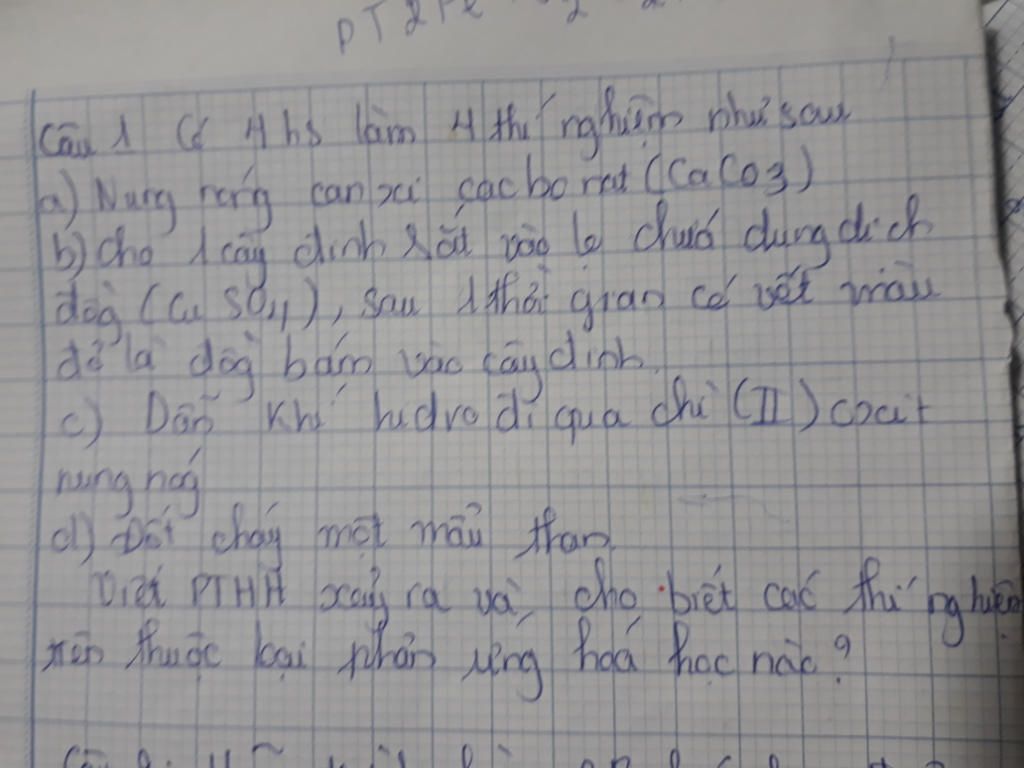 PT
Câu 1 Có 4 hs làm 4 thí nghiệm như sau
a) Nung nóng canxi cacbonat (CaCO3)
b) Cho 1 cây đinh sắt vào lọ chứa dung dịch
đồg (CuSO4), sau 1 thời gian có vết màu
đỏ là đồg bám vào cây đinh.
c) Dẫn khí hidro đi qua chì (II) oxit
nung nóg
d) Đốt cháy một mẩu than
Viết PTHH xảy ra và cho biết các thí nghiệm
trên thuộc loại phản ứng hoá học nào?